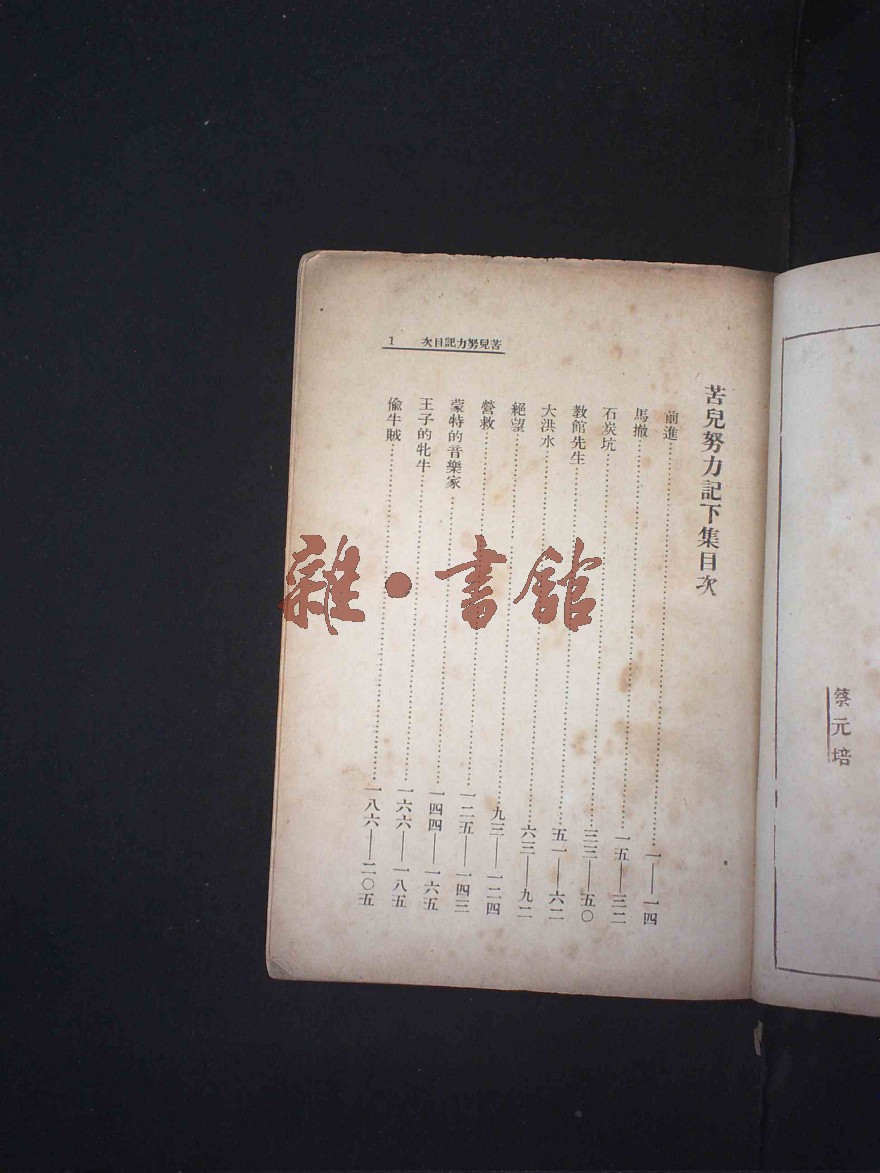 蔡元培
苦兒努力記目次 1
苦兒努力記下集目次
前進……一——一四
馬撤……一五——三二
石炭坑……三三——五〇
教館先生……五一——六二
大洪水……六三——九二
絕望……九三——一二四
營救……一二五——一四三
蒙特的音樂家……一四四——一六五
王子的牝牛……一六六——一八五
偷牛賊……一八六——二〇五
雜·書館